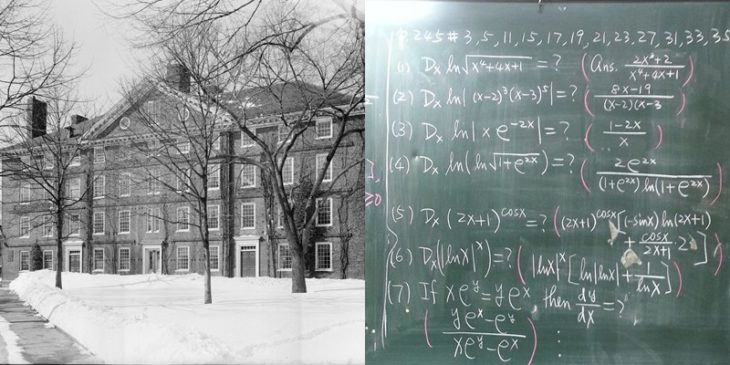 p.245 # 3, 5, 11, 15, 17, 19, 21, 23, 27, 31, 33, 35
(1) Dx ln√(x⁴+4x+1) = ? (Ans. (2x³+2)/(x⁴+4x+1))
(2) Dx ln|(x-2)³(x-3)⁵| = ? ((8x-19)/((x-2)(x-3))
(3) Dx ln|x e^(-2x)| = ? ((1-2x)/x)
(4) Dx ln(ln√(1+e^(2x))) = ? (2e^(2x)/((1+e^(2x)) ln(1+e^(2x))))
(5) Dx (2x+1)^cosx = ? ((2x+1)^cosx [(-sinx) ln(2x+1)
+ cosx/(2x+1) · 2])
(6) Dx(|lnx|^x) = ? (|lnx|^x [ln|lnx| + 1/lnx])
(7) If xe^y = ye^x, then dy/dx = ?
((ye^x - e^y)/(xe^y - e^x))